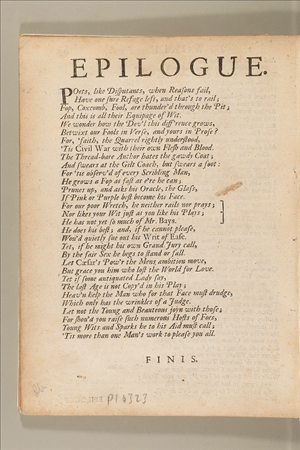 EPILOGUE.
POets, like Disputants, when Reasons fail,
Have one sure Refuge left, and that's to rail;
Fop, Coxcomb, Fool, are thunder'd through the Pit;
And this is all their Equipage of Wit.
We wonder how the Dev'l this diff'rence grows,
Betwixt our Fools in Verse, and yours in Prose?
For, 'faith, the Quarrel rightly understood,
'Tis Civil War with their own Flesh and Blood.
The Thread-bare Author hates the gawdy Coat;
And swears at the Gilt Coach, but swears a foot:
For 'tis observ'd of every Scribling Man,
He grows a Fop as fast as e're he can;
Prunes up, and asks his Oracle, the Glass,
If Pink or Purple best become his Face.
For our poor Wretch, he neither rails nor prays;
Nor likes your Wit just as you like his Plays;
He has not yet so much of Mr. Bays.
He does his best; and, if he cannot please,
Wou'd quietly sue out his Writ of Ease.
Yet, if he might his own Grand Jury call,
By the fair Sex he begs to stand or fall.
Let Cæsar's Pow'r the Mens ambition move,
But grace you him who lost the World for Love.
Yet if some antiquated Lady say,
The last Age is not Copy'd in his Play;
Heav'n help the Man who for that Face must drudge,
Which only has the wrinkles of a Judge.
Let not the Young and Beauteous joyn with those;
For shou'd you raise such numerous Hosts of Foes,
Young Wits and Sparks he to his Aid must call;
'Tis more than one Man's work to please you all.
FINIS.